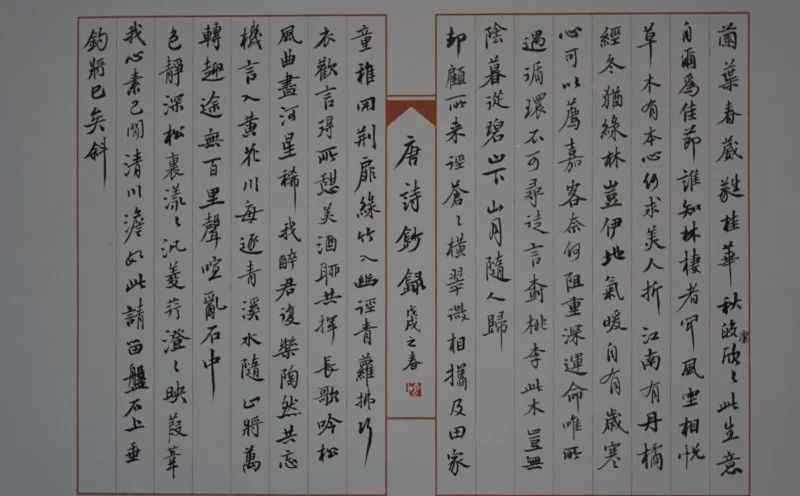 蘭葉春葳蕤桂華秋皎潔欣〻此生意
自爾爲佳節誰知林棲者聞風坐相悅
草木有本心何求美人折江南有丹橘
經冬猶綠林豈伊地氣暖自有歲寒
心可以薦嘉客奈何阻重深運命唯所
遇循環不可尋徒言樹桃李此木豈無
陰暮從碧山下山月隨人歸
却顧所来逕蒼〻橫翠微相攜及田家
唐詩鈔錄戊戌之春
童稚開荊扉綠竹入幽逕青蘿拂行
衣歡言得所憩美酒聊共揮長歌吟松
風曲盡河星稀我醉君復樂陶然共忘
機言入黃花川每逐青溪水隨山將萬
轉趣途無百里聲喧亂石中
色靜深松裏漾〻汎菱荇澄〻映葭葦
我心素已閒清川澹如此請留盤石上垂
釣將已矣斜